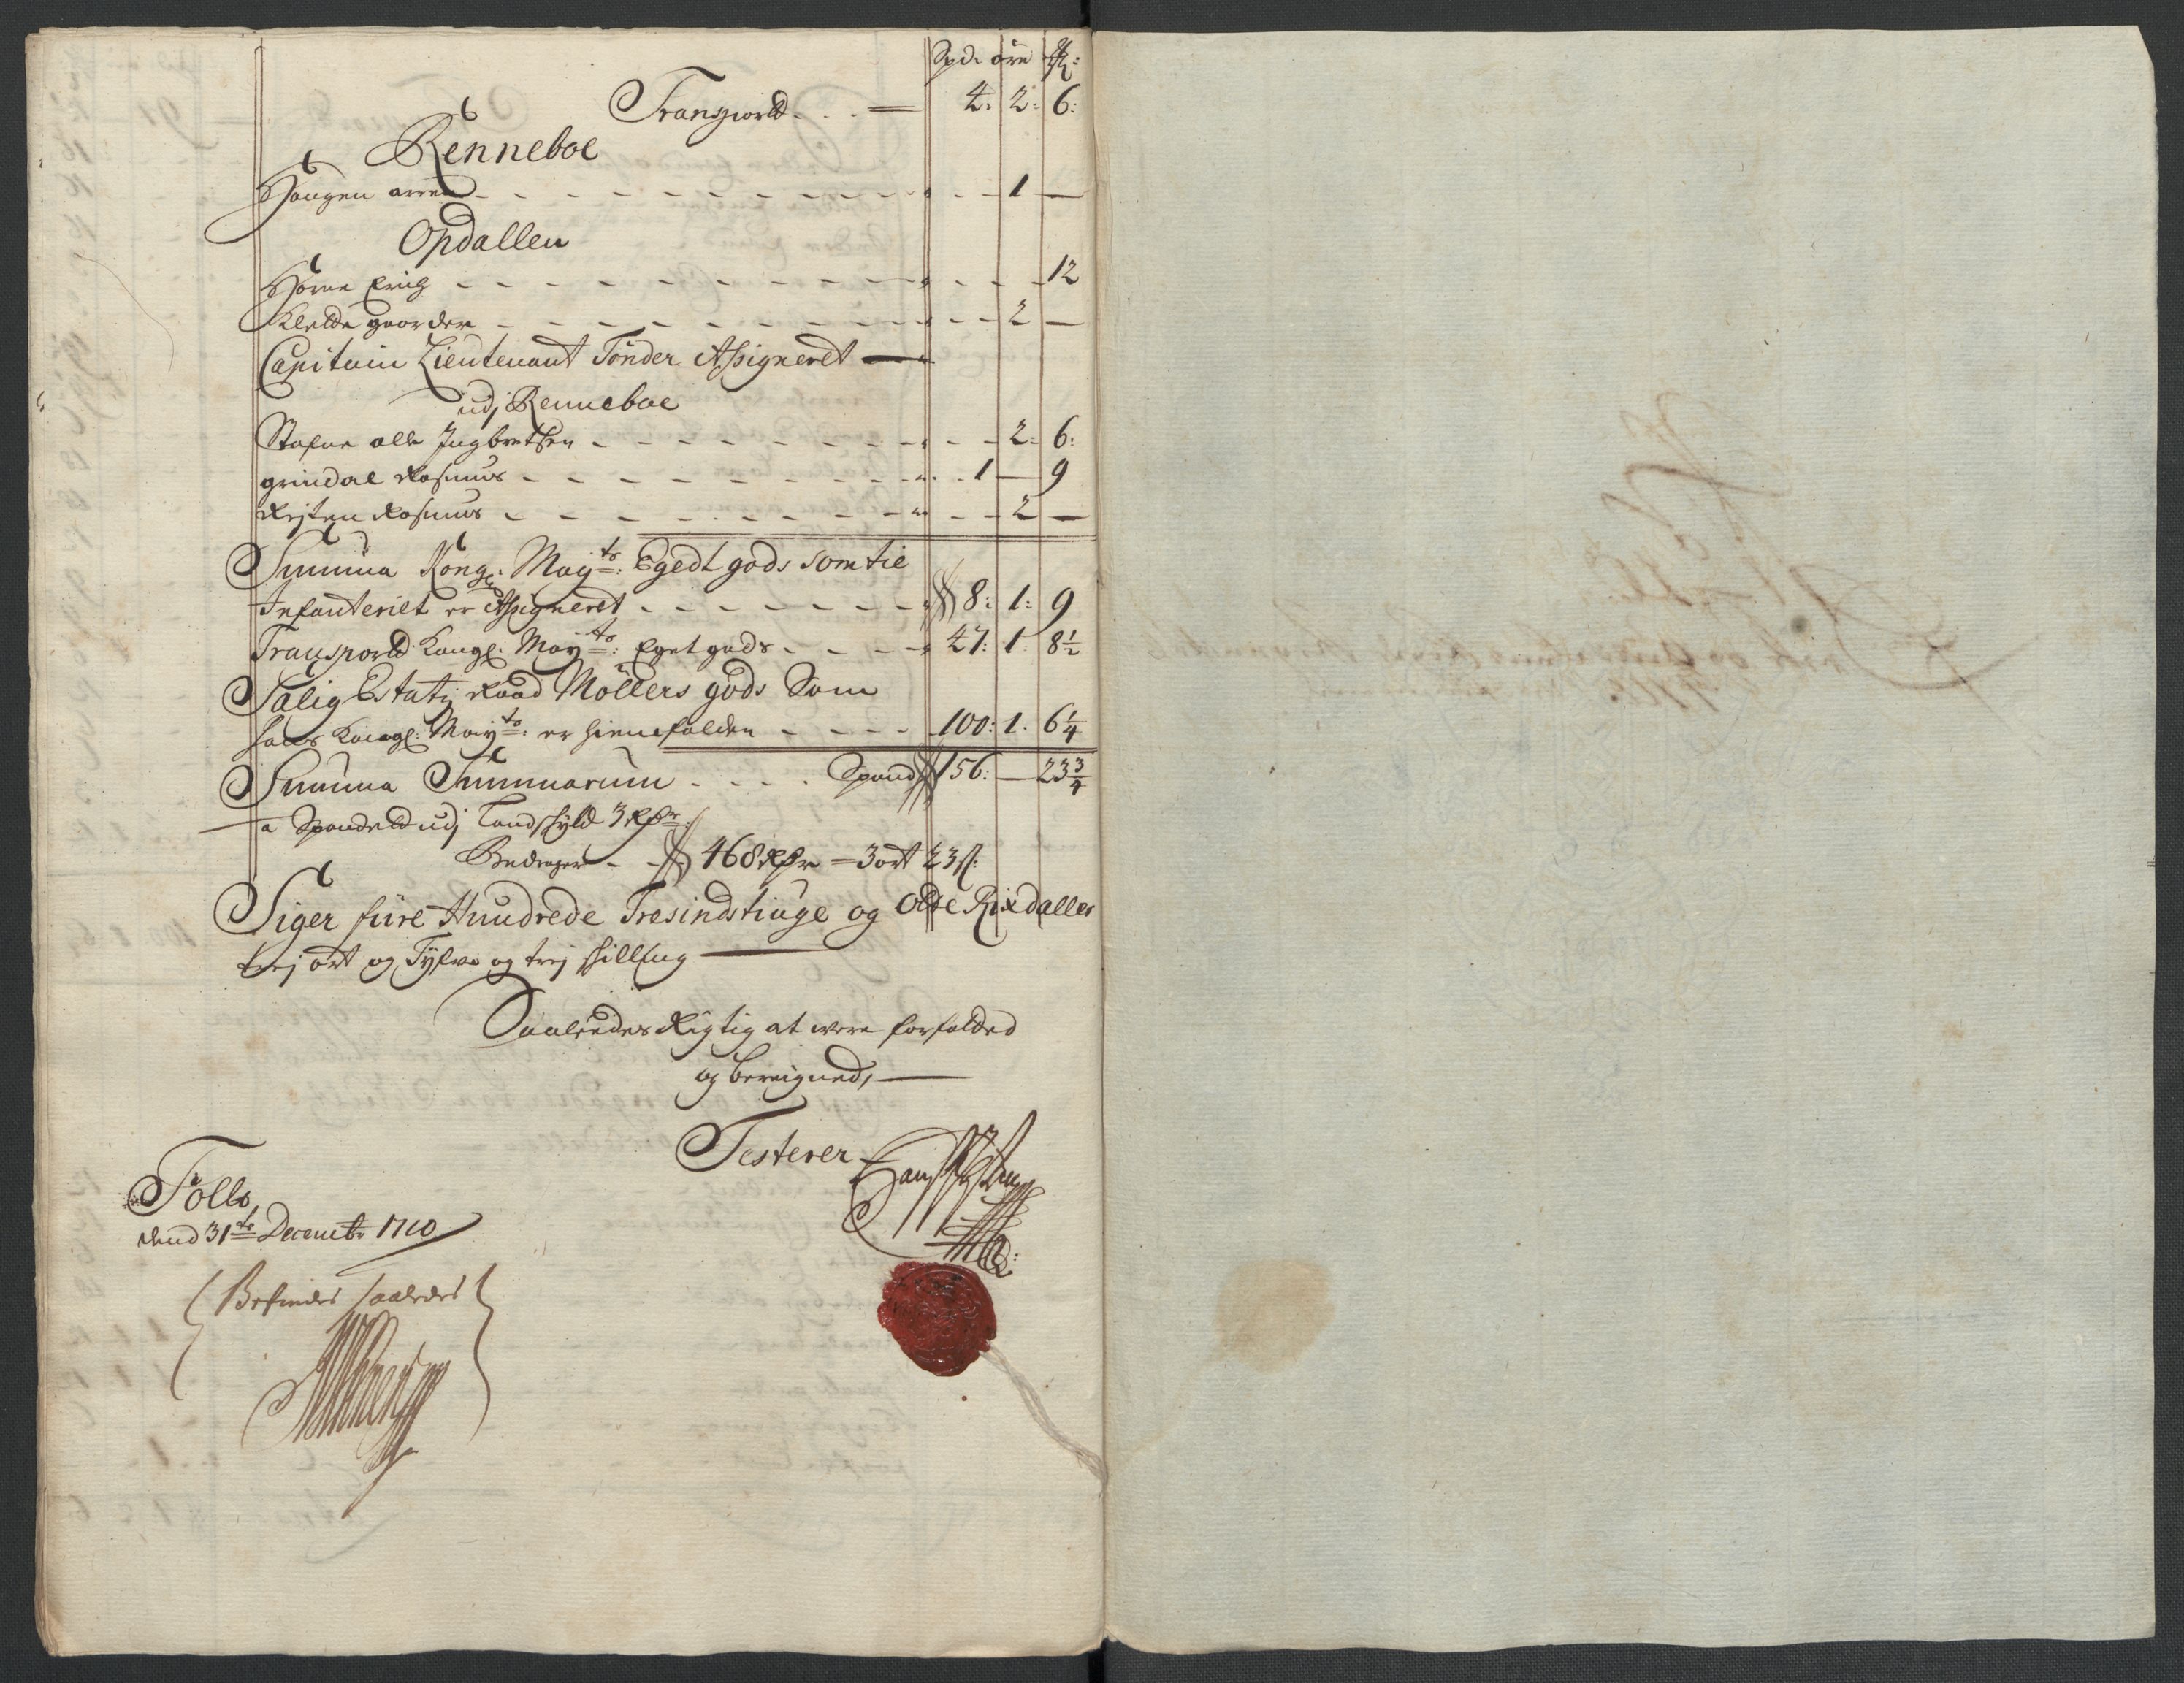 Spd: øre ß:
Transporld . . . — 4: 2: 6:
Renneboe
Hougen arne - - - 1 —
Opdallen
Horne Erich - - - 12
Klefde gaarden - - - 2 —
Capitain Lieutenant Tønder Assigneret —
udj Renneboe
Stafne olle Ingbretsen - - - 2: 6:
grindal Rasmus - - - 1 — 9
Rejten Rasmus - - - 2 —
Summa Kongl: Mayts: Egedt gods som til
Infanteriet er Assigneret - - - 8: 1: 9
Transporld Kongl: Mayts: Eget gods - - - 47: 1 8½
Salig Estatz Raad Møllers gods Som
til Kongl: Mayts: er hiemfalden - - - 100: 1. 6¼
Summa Summarum - - - Spand 156: — 23¾
a Spandet udj Landschyld 3 Rdr:
Bedrager - - 468 Rdr — 3 ort 23 ß:
Siger fiire Hundrede Tresindstiuge og Otte Rixdaller
trej ort og Tyfve og trej schilling —
Saaledes Rigtig at were forfalded
og beregned, —
Testerer
Follo,
dend 31te Decembr 1710
Befindes saaledes